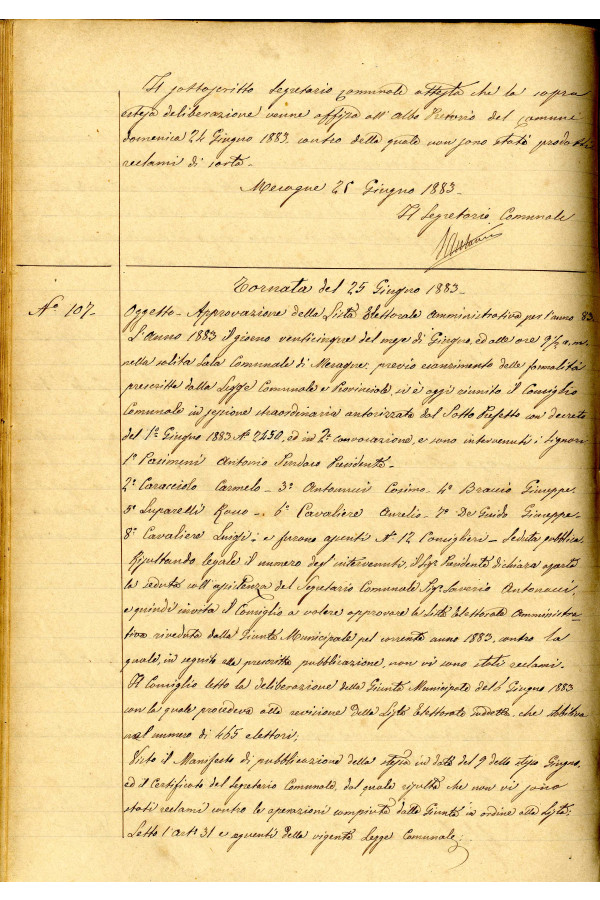 Il sottoscritto Segretario Comunale attesta che la sopra
estesa deliberazione venne affissa all'Albo Pretorio del comune
domenica 24 Giugno 1883. contro della quale non sono stati prodotti
reclami di sorta.
Mesagne 25 Giugno 1883.
Il Segretario Comunale
SAntonucci
Tornata del 25 Giugno 1883.
N.° 107.
Oggetto - Approvazione della Lista Elettorale Amministrativa per l'anno 83
L'Anno 1883 il giorno venticinque del mese di Giugno, ed alle ore 9 1/2 a.m.
nella solita Sala Comunale di Mesagne; previo esaurimento delle formalità
prescritte dalla Legge Comunale e Provinciale, si è oggi riunito il Consiglio
Comunale in sessione straordinaria autorizzata dal Sotto Prefetto con decreto
del 1° Giugno 1883 N° 2250, ed in 2a convocazione, e sono intervenuti i Signori
1° Pacimeni Antonio Sindaco Presidente -
2° Caracciolo Carmelo - 3° Antonucci Cosimo - 4° Braccio Giuseppe
5° Luparelli Rocco - 6° Cavaliere Aurelio - 7° De Guido Giuseppe -
8° Cavaliere Luigi - e furono assenti N° 12 Consiglieri - Seduta pubblica.
Risultando legale il numero degl'intervenuti, il Sigr Presidente dichiara aperta
la seduta coll'assistenza del Segretario Comunale Sigr Saverio Antonucci,
e quindi invita il Consiglio a volere approvare la lista Elettorale Amministra-
tiva riveduta dalla Giunta Municipale pel corrente anno 1883, contro la
quale, in seguito alla prescritta pubblicazione, non vi sono stati reclami.
Il Consiglio letto la deliberazione della Giunta Municipale del 6 Giugno 1883
con la quale procedeva alla revisione della Lista Elettorale suddetta, che stabiliva
nel numero di 465 elettori;
Visto il Manifesto di pubblicazione della stessa in data del 9 dello stesso Giugno,
ed il Certificato del Segretario Comunale, dal quale risulta che non vi sono
stati reclami contro le operazioni compiute dalla Giunta in ordine alla Lista;
Letto l'art. 31 e seguenti della vigente Legge Comunale;